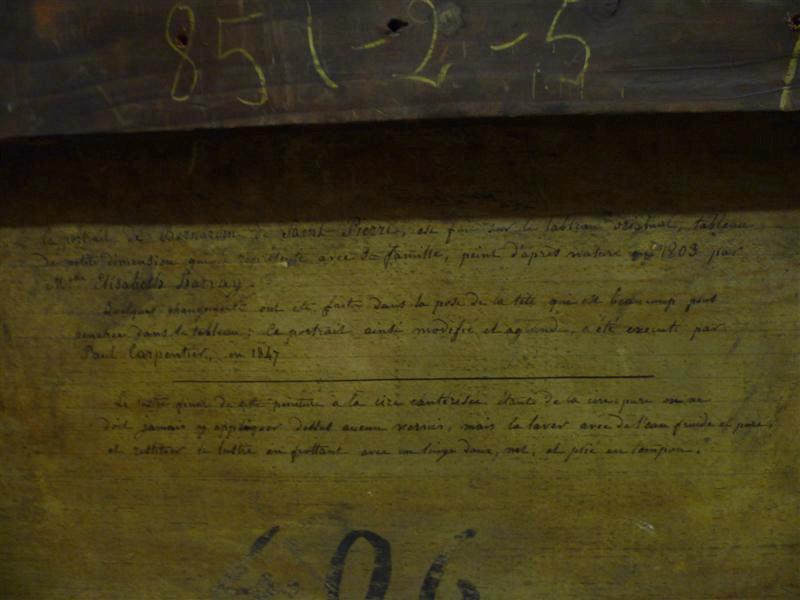 851-2-5
Ce portrait de Bernardin de Saint-Pierre, est fait sur le tableau original, tableau
de petite dimension qui le représente avec sa famille, peint d'après nature en 1803 par
Mlle Elisabeth Harvay.
Quelques changements ont été faits dans la pose de la tête que est beaucoup plus
penchée dans le tableau; Ce portrait ainsi modifié et agrandi, a été exécuté par
Paul Carpentier, en 1847
Le lustre de cette peinture à la cire cautérisée étant de la cire pure on ne
doit jamais y appliquer dessus aucun vernis, mais la laver avec de l'eau froide et pure,
et restituer ce lustre en frottant avec un linge doux, net, et plié en tampon.
406